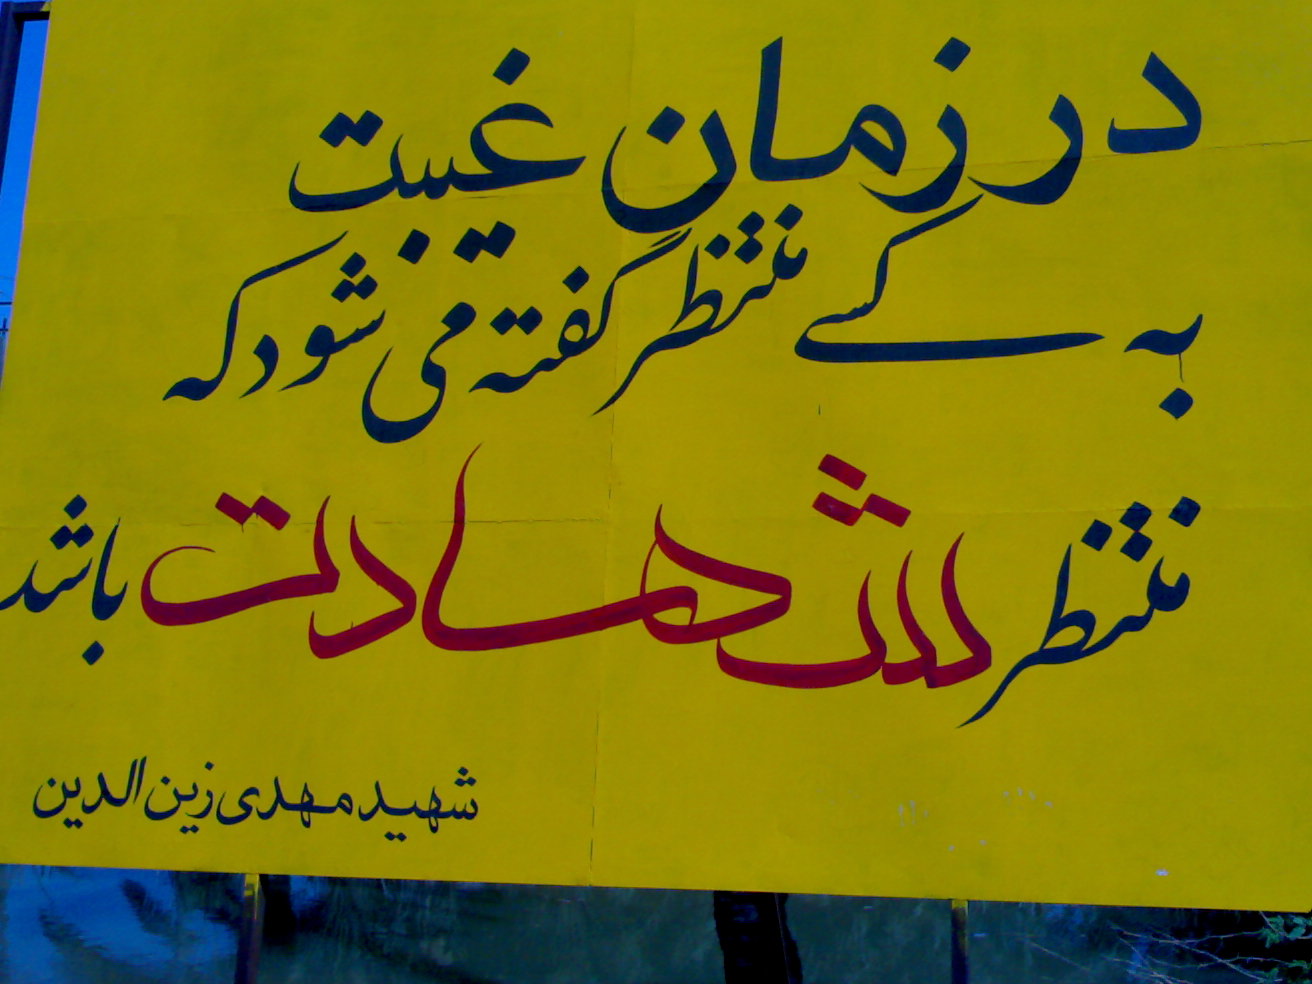 در زمان غیبت
به کسے منتظر گفته می شود که
منتظر شهادت باشد
شهید مهدی زین الدین